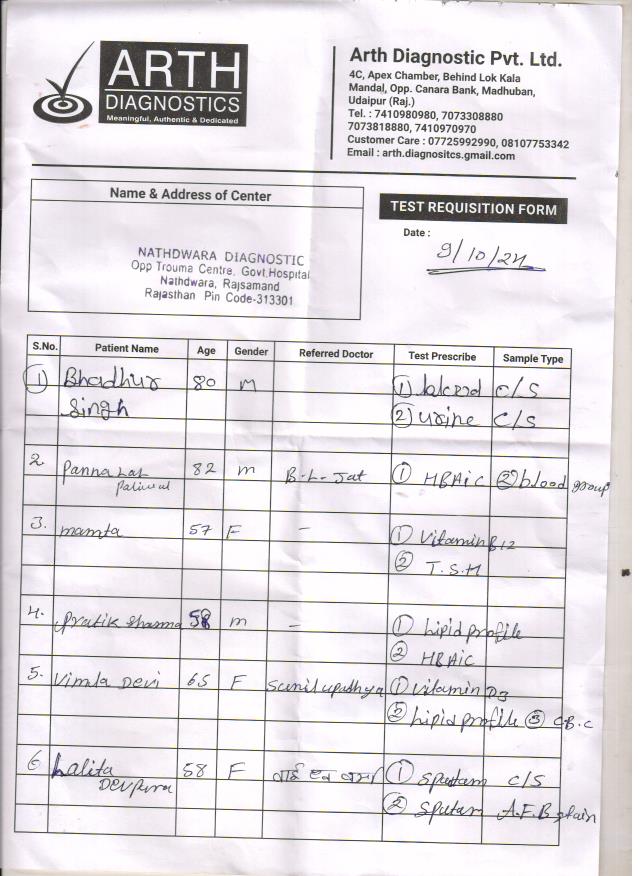 ARTH
DIAGNOSTICS
Meaningful, Authentic & Dedicated
Arth Diagnostic Pvt. Ltd.
4C, Apex Chamber, Behind Lok Kala
Mandal, Opp. Canara Bank, Madhuban,
Udaipur (Raj.)
Tel. : 7410980980, 7073308880
7073818880, 7410970970
Customer Care : 07725992990, 08107753342
Email : arth.diagnositcs.gmail.com
Name & Address of Center
NATHDWARA DIAGNOSTIC
Opp Trouma Centre, Govt.Hospital
Nathdwara, Rajsamand
Rajasthan Pin Code-313301
TEST REQUISITION FORM
Date :
9/10/24
S.No. Patient Name Age Gender Referred Doctor Test Prescribe Sample Type
① Bhadhur 80 M ① C/S
Singh ② urine C/S
2. Panna Lal 82 m B-L-Jat ① HBAIC ② blood group
Paliwal
3. mamta 57 F - ① Vitamin B12
② T.S.H
4. Pratik Sharma 58 m - ① Lipid profile
② HBAIC
5. Vimla Devi 65 F Sunil upadhya ① Vitamin D3
② Lipid profile ③ C.B.C
6 Lalita 58 F ① Sputam C/S
Devpura
② Sputam A.F.B stain